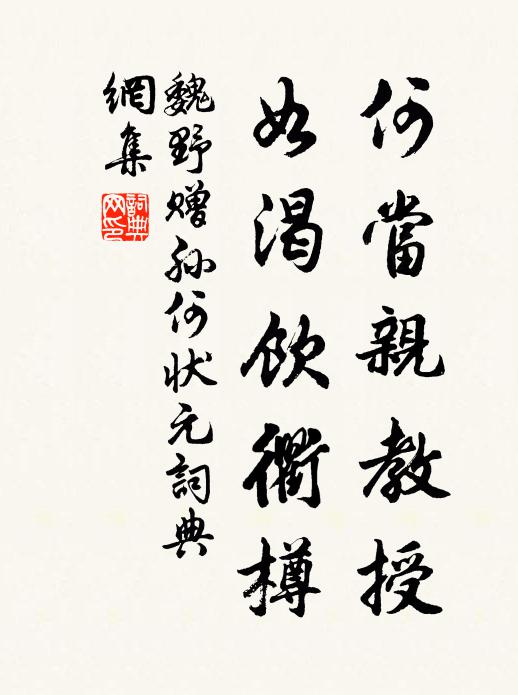 何當親教授
如渴飲衢樽
魏野贈孫何狀元詞典
網集
詞典
网印